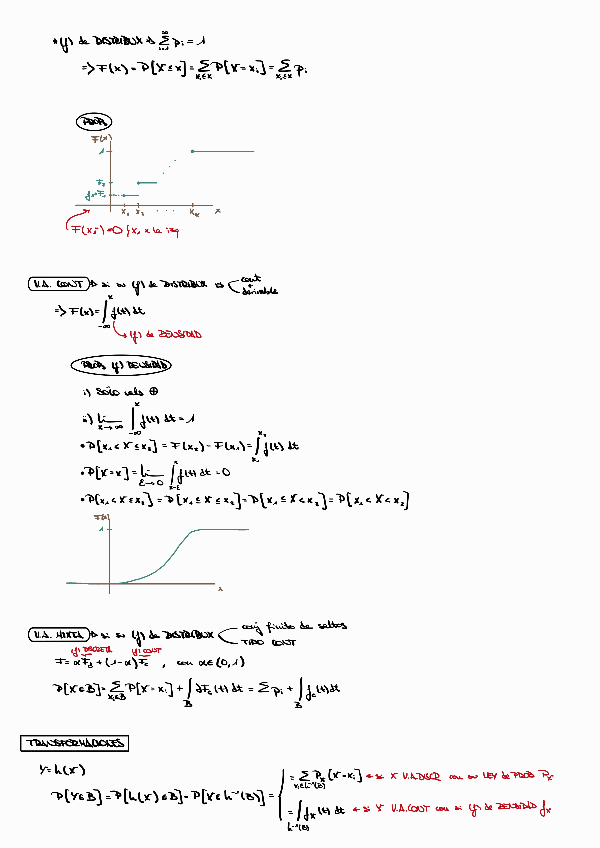 • (f) de DISTRIBUX → ∞∑i=1 pᵢ = 1
=> F(x) = P[X ≤ x] = ∑xᵢ≤x P[X = xᵢ] = ∑xᵢ≤x pᵢ
PROPS
F(x)
1
F₂
x₁ x₂ .... xₖ x
F(xᵢ⁻) = 0
V.A. CONT → si su (f) de DISTRIBUX es cont + derivable
=> F(x) = ∫₋∞ˣ f(t) dt
→ (f) de DENSIDAD
PROPS (f) DENSIDAD
i) Sólo vals ⊕
ii) lim x→∞ ∫₋∞ˣ f(t) dt = 1
• P[x₁ < X ≤ x₂] = F(x₂) - F(x₁) = ∫ₓ₁ˣ² f(t) dt
• P[X = x] = lim ε→0 ∫ₓ₋εˣ f(t) dt = 0
• P[x₁ < X ≤ x₂] = P[x₁ ≤ X ≤ x₂] = P[x₁ ≤ X < x₂] = P[x₁ < X < x₂]
F(x)
1
x
V.A. MIXTA → si su (f) de DISTRIBUX conj finito de saltos
TIPO CONT
(f) DISCRETA (f) CONT
F = αF_d + (1-α)F_c , con α∈(0,1)
P[X∈B] = ∑xᵢ∈B P[X = xᵢ] + ∫_B dF_c(t) dt = ∑ pᵢ + ∫_B f_c(t) dt
TRANSFORMACIONES
Y = h(X)
P[Y∈B] = P[h(X)∈B] = P[X∈h⁻¹(B)] =
= ∑xᵢ∈h⁻¹(B) Pₓ[X = xᵢ] ← si X V.A. DISCR con su LEY de PROB Pₓ
= ∫h⁻¹(B) fₓ(t) dt ← si X V.A. CONT con su (f) de DENSIDAD fₓ